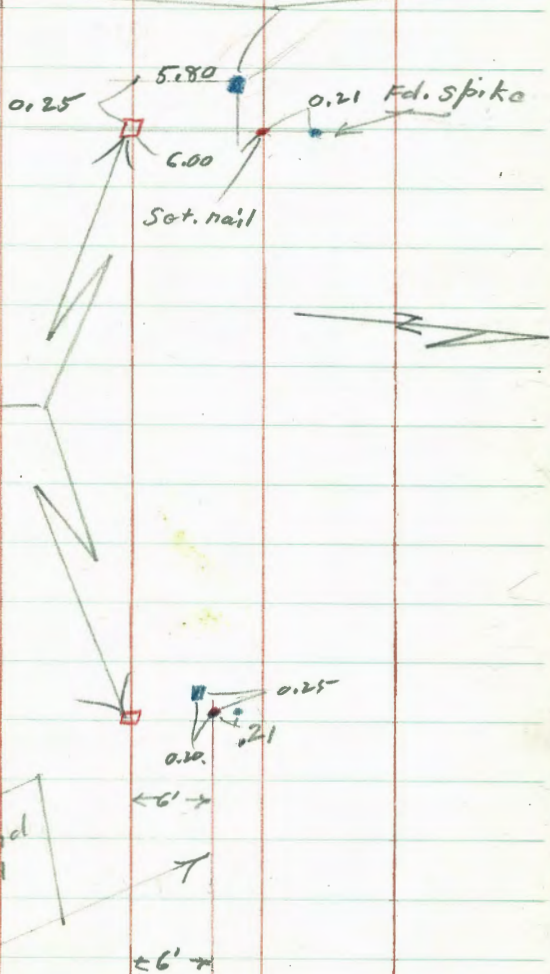 5.80
0.25
0.21 Fd. spike
6.00
Set. nail
0.25
.21
0.20.
6'
d
6'